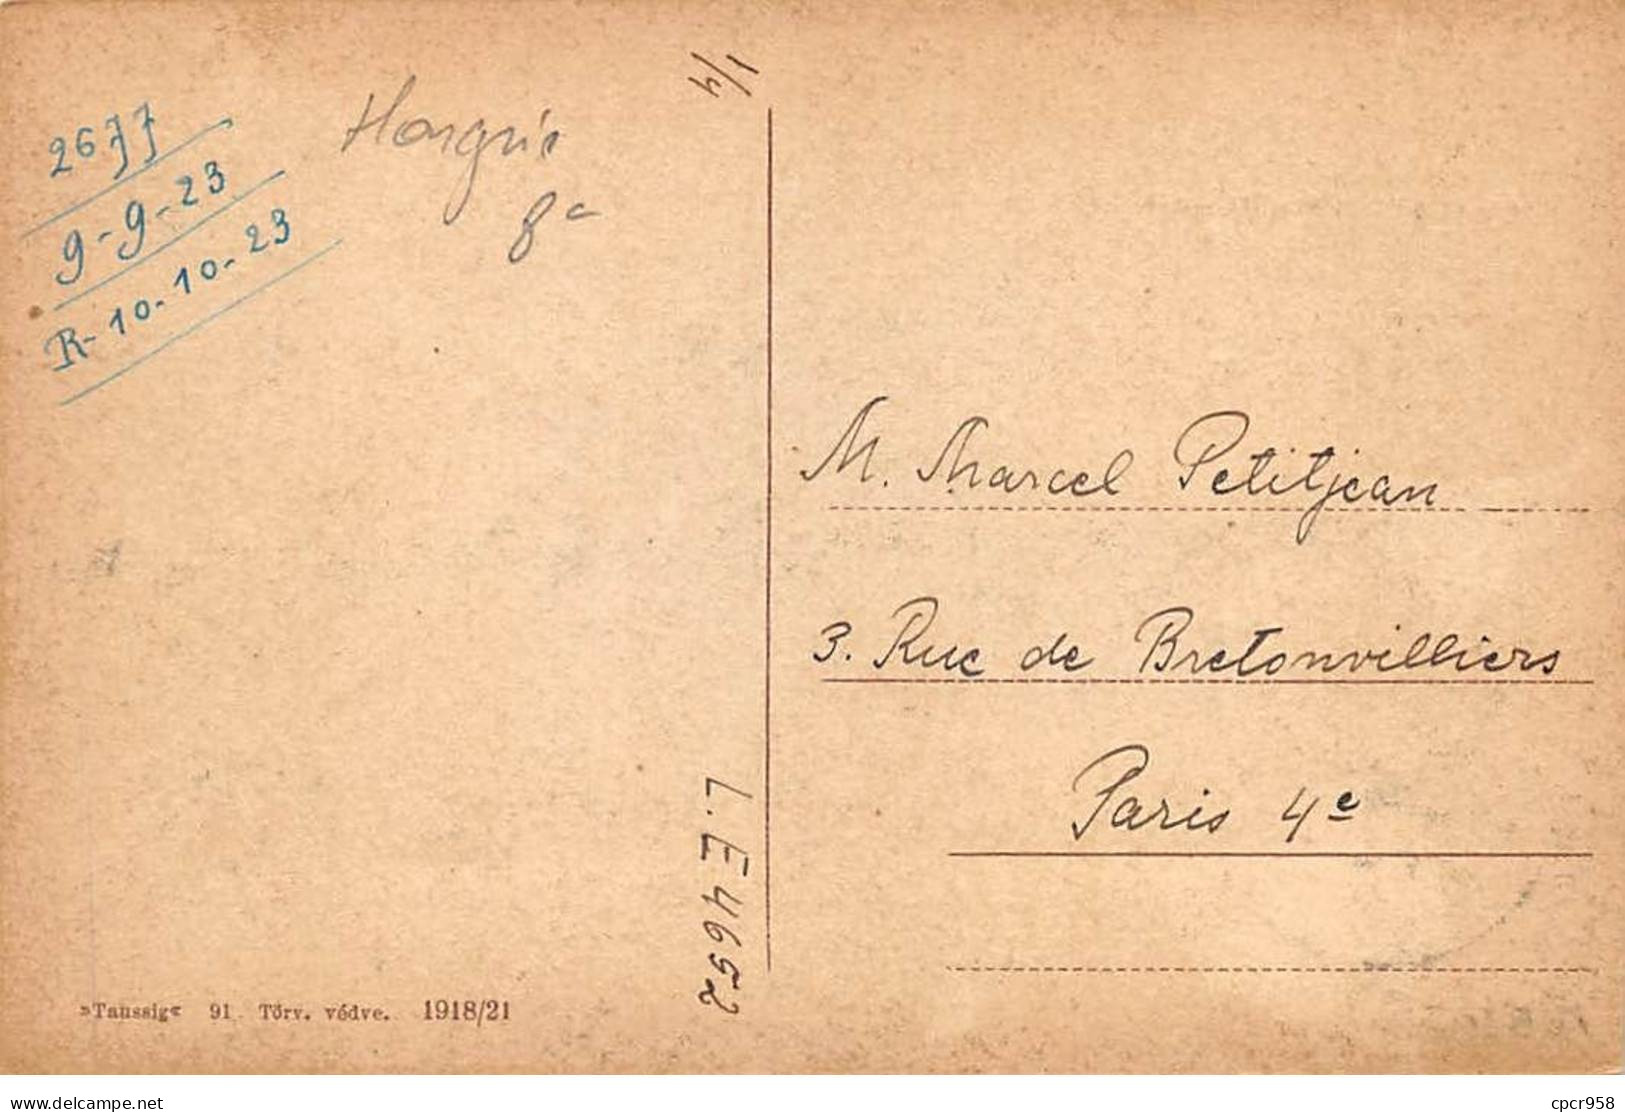 1/4
2677
9-9-23
R-10-10-23
Hongrie
8
M. Marcel Petitjean
3. Rue de Bretonvilliers
Paris 4e
L. E 4652
»Taussig« 91 Törv. védve. 1918/21
www.delcampe.net
cpcr958